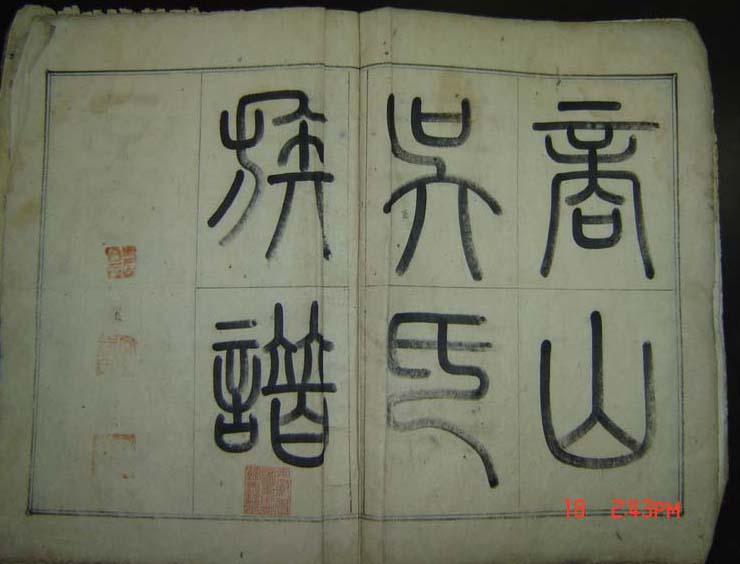 商山
吳氏
族譜
18 2:43PM